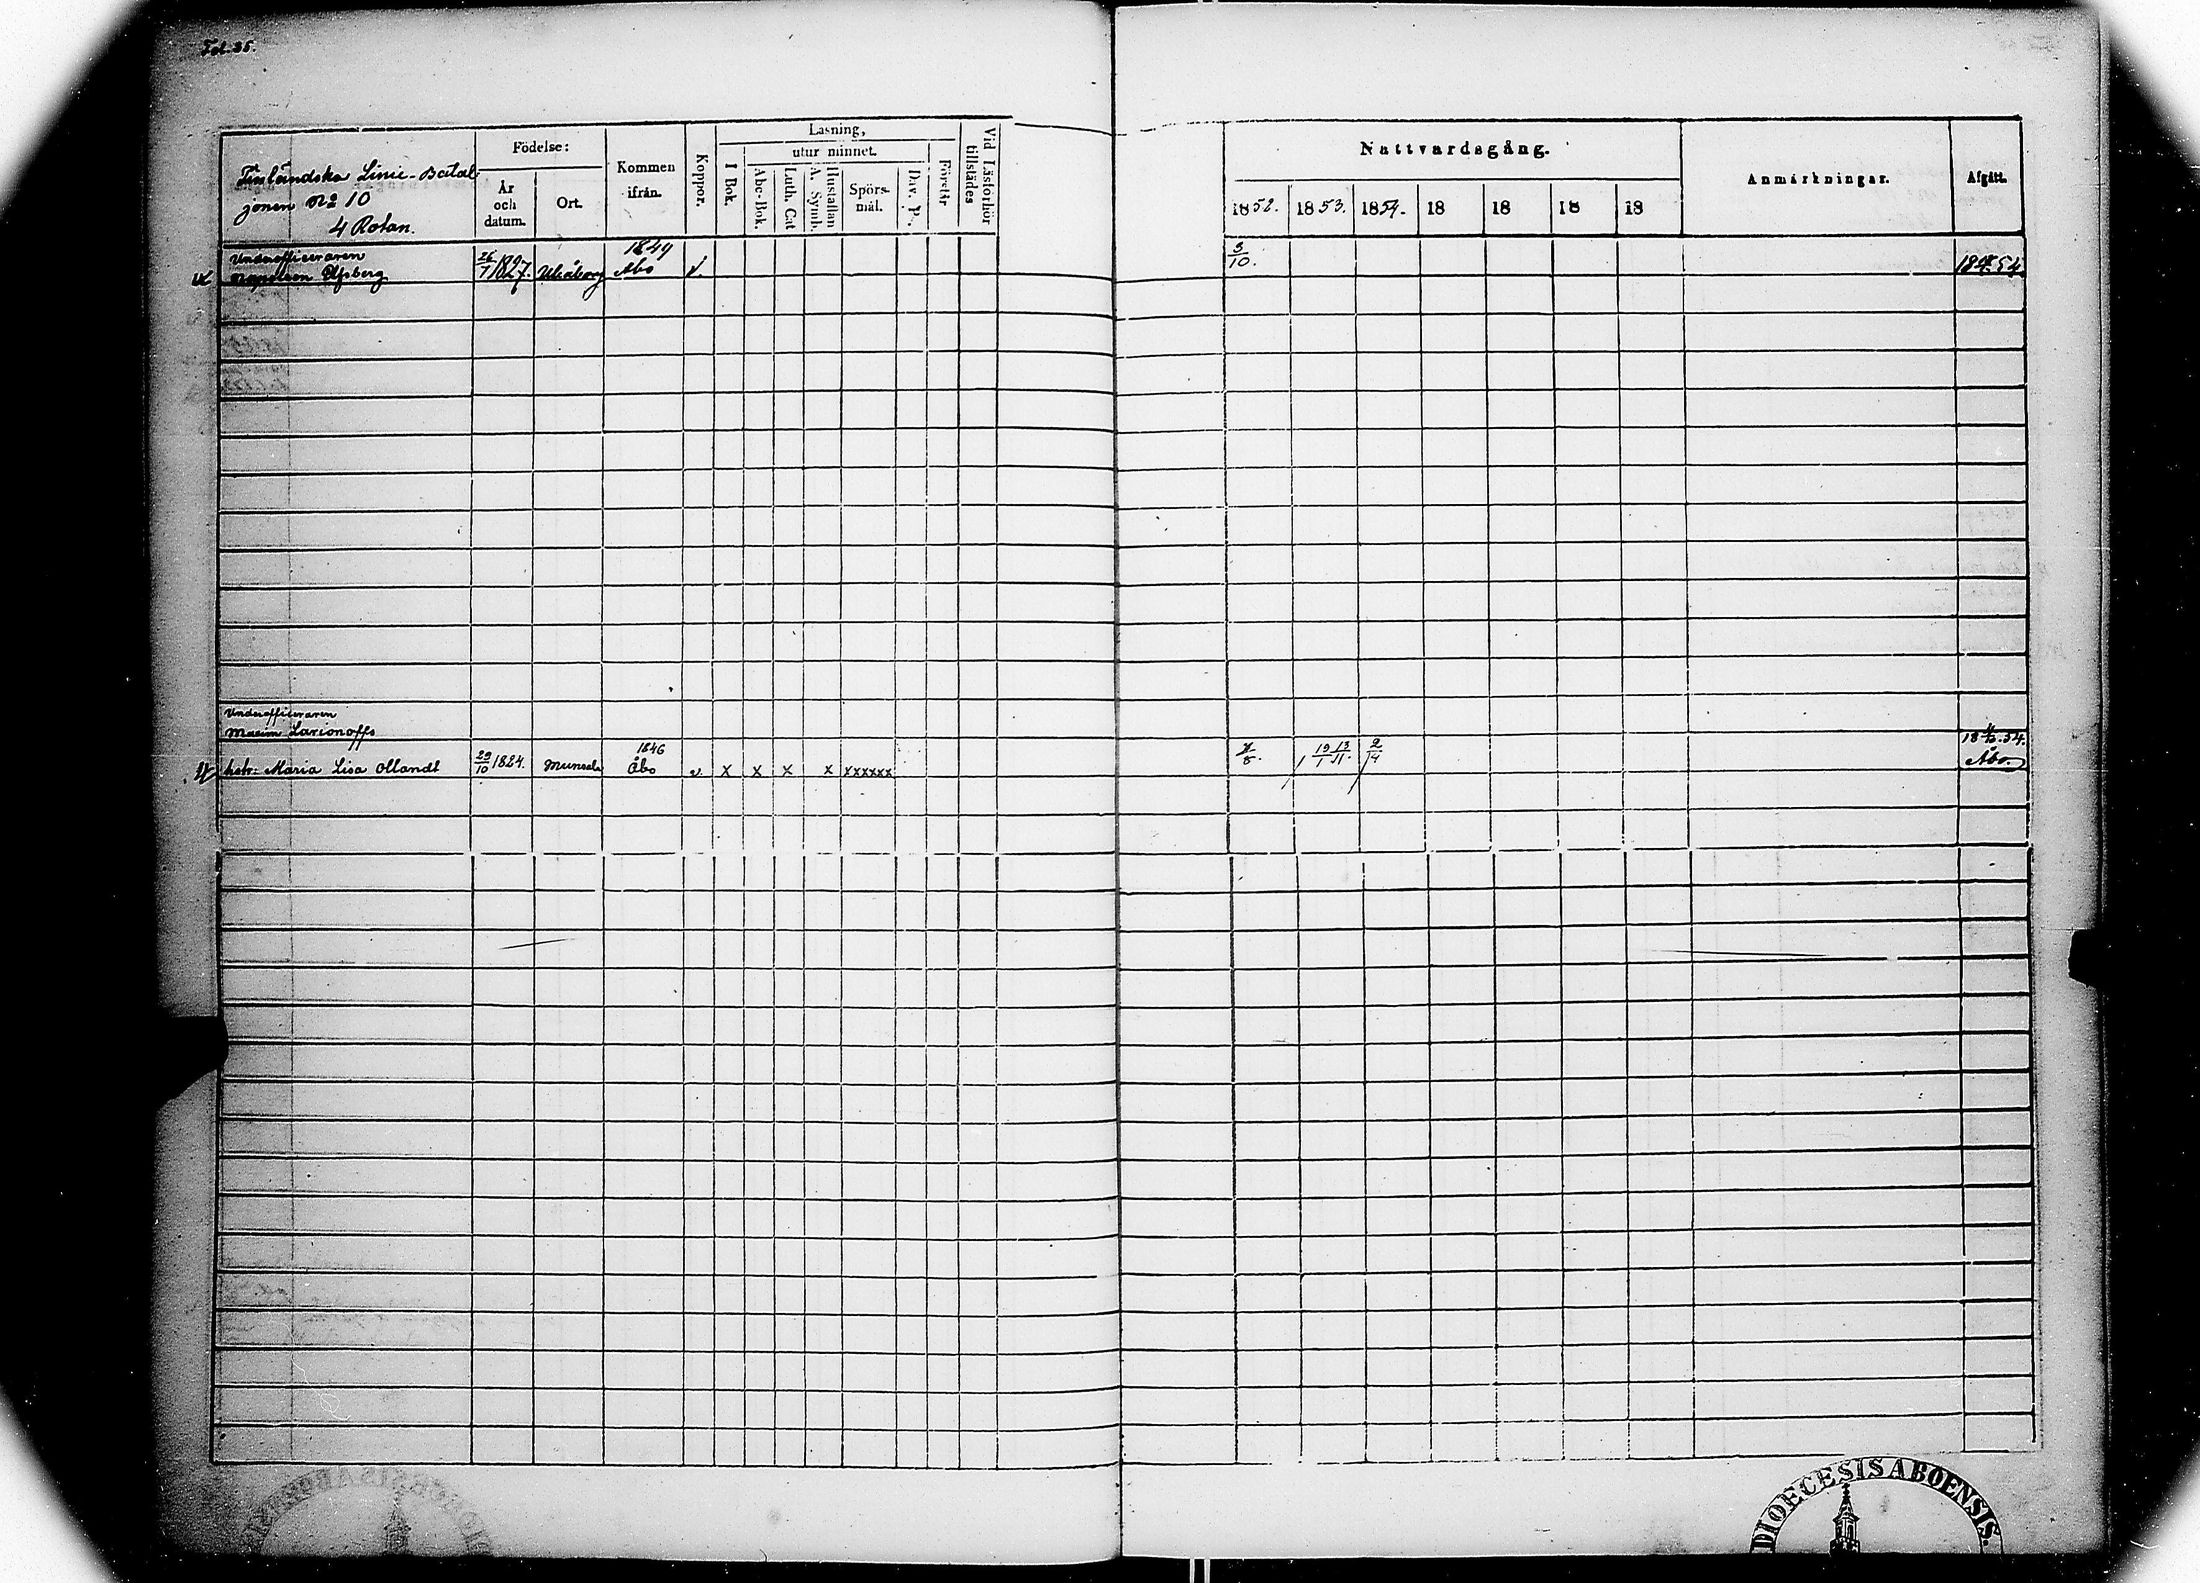 Fol. 35.
Finländska Linie-Batal
jonen No 10
4 Rotan.
Födelse:
År och datum.
Ort.
Kommen ifrån.
Koppor.
Läsning,
utur minnet.
I Bok.
Abc-Bok.
Luth. Cat
Hustaflan A. Symb.
Spörs-mål.
Dav. Ps.
Förstår
Vid Läsförhör tillstädes
Nattvardsgång.
1852. 1853. 1854. 18 18 18 18
Anmärkningar.
Afgått.
Underofficeraren 1849
Napoleon Elfsberg 26/7 1827. Uleåborg Åbo v. 3/10. 54
Underofficeraren
Maxim Larionoffs
hstr: Maria Lisa Ollandt 29/10 1824. Munsala 1846 Åbo v. x x x x xxxxxx 19/1 13/11. 2/4 54. Åbo.
DIOECESIS ABOENSIS.